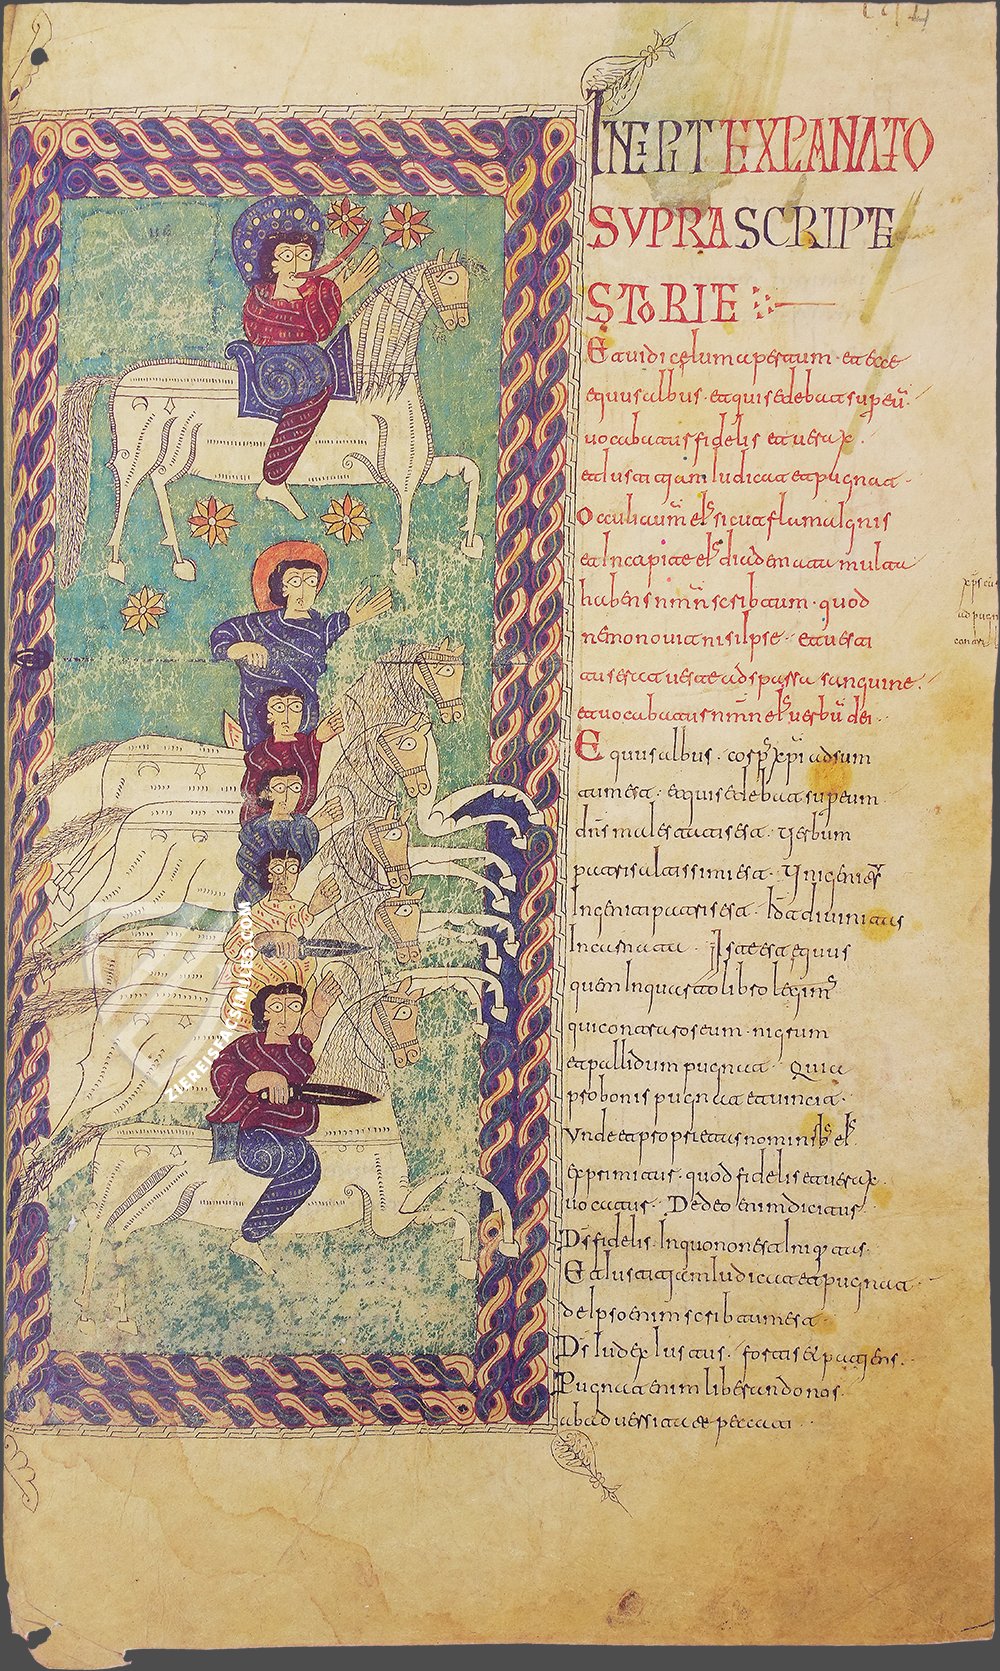 INCIPIT EXPLANATO
SVPRASCRIPTE
STORIE
Et uidi celum apertum · et ecce
equus albus · et qui sedebat super eū ·
uocabatur fidelis et uerax ·
et Iustitiam Iudicat et pugnat ·
Occuli aūm eīs sicut flama Ignis
et In capite eīs diademata multa
habens nmn̄ scribtum · quod
nemo nouit nisi Ipse · et uesti
tus erat ueste adspassa sanguine ·
et uocabatur nmn̄ eīs uerbū dei ·
Equus albus · corps̄ xp̄i adsum
tum est · et qui sedebat super eum
dn̄s maiestatis est · Uerbum
patris altissimi est · Unigenitus
Ingeniti patris est · diuinitas
Incarnata · Iste est equus
quem In quarto libro legimus
qui contra roseum · nigrum
et pallidum pugnat · Quia
pro bonis pugnat et uincit ·
Unde et proprietas nominis eīs
exprimitur · quod fidelis et uerax
uocatur · De deo enim dicitur
Ds̄ fidelis · In quo non est Iniqtas ·
Et Iustitiam Iudicat et pugnat ·
de Ipso enim scribtum est ·
Ds̄ Iudex Iustus · fortis et patiens ·
Pugnat enim liberando nos ·
ab aduersita peccati ·
ZIEREISFACSIMILES.COM